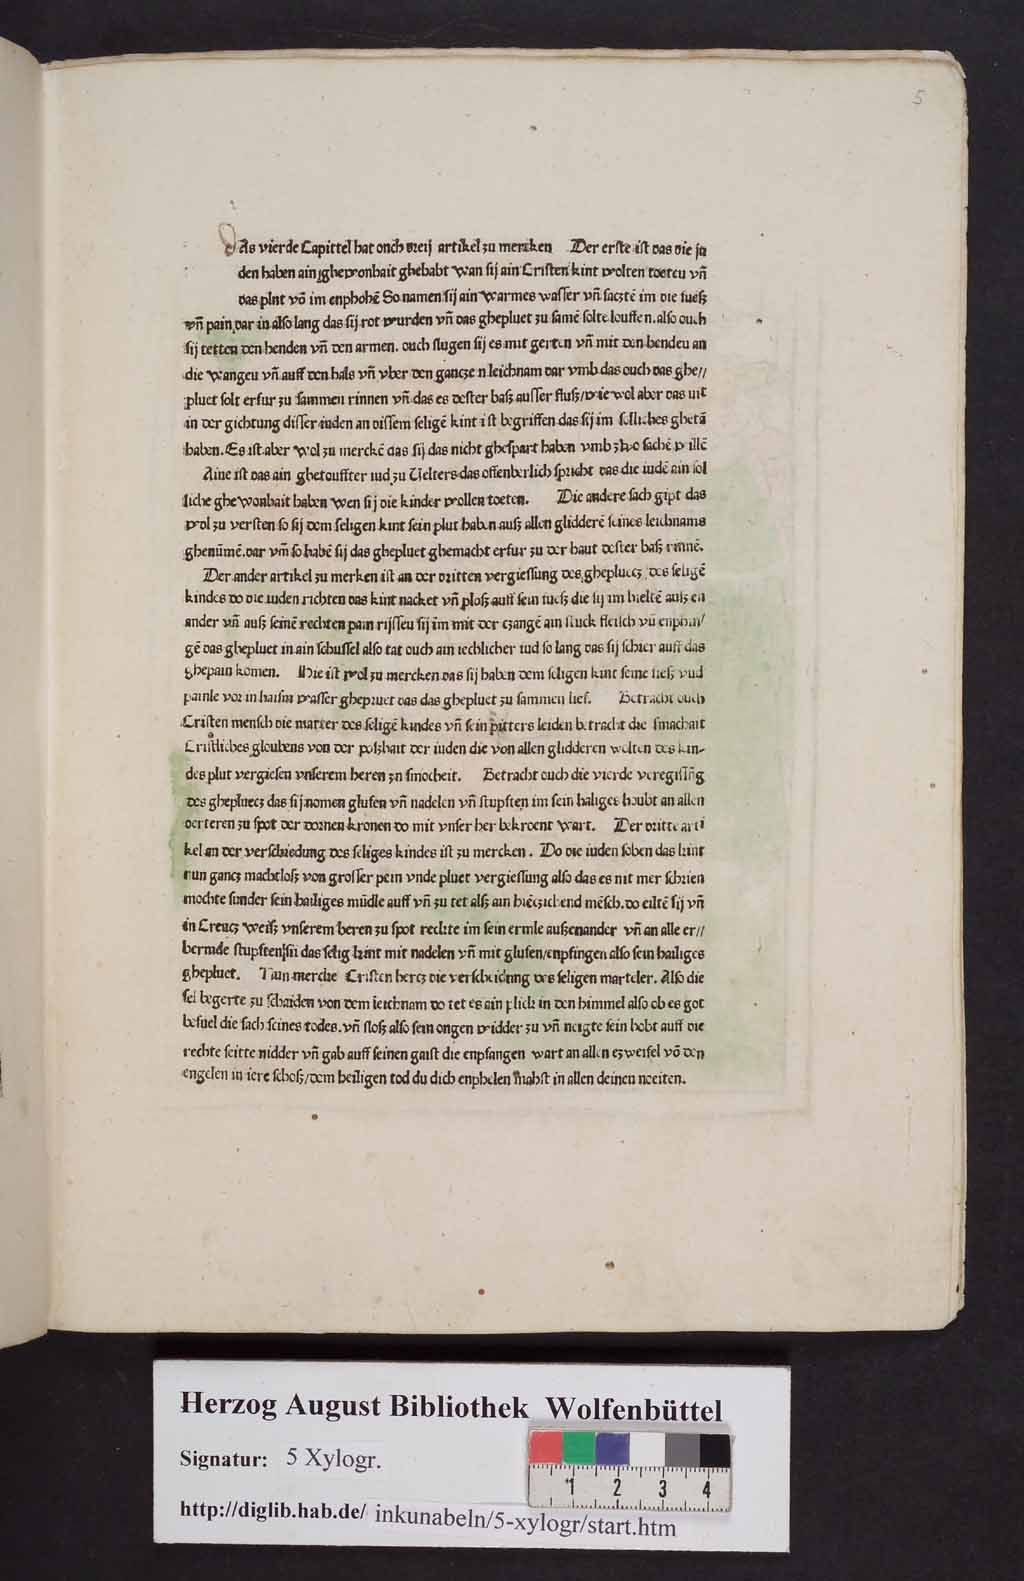 5
DAs vierde Capittel hat onch dreij artikel zu mercken Der erste ist das die ju
den haben ain ghewonhait ghehabt wan sij ain Cristen kint wolten toeteu vn̄
das plnt vō im enphohē So namen sij ain warmes wasser vn̄ sacztē im die fueß
vn̄ pain dar in also lang das sij rot wurden vn̄ das ghepluet zu samē solte louffen. also ouch
sij tetten den henden vn̄ den armen. ouch slugen sij es mit gerten vn̄ mit den hendeu an
die wangeu vn̄ auff den hals vn̄ vber den gancze n leichnam dar vmb das ouch das ghe//
pluet solt erfur zu sammen rinnen vn̄ das es dester baß ausser fluß/wie wol aber das nit
in der gichtung disser iuden an dissem seligē kint i st begriffen das sij im solliches ghetā
haben. Es ist aber wol zu merckē das sij das nicht ghespart haben vmb zwo sachē willē
Aine ist das ain ghetouffter iud zu Uelters das offenberlich spricht das die iudē ain sol
liche ghe wonhait haben wen si j die kinder wollen toeten. Die andere sach gipt das
wol zu versten so sij dem seligen kint sein plut haben auß allen gliddere͞ seines leichnams
ghenūmē. dar vm̄ so habē sij das ghepluet ghemacht erfur zu der haut dester baß rinnē.
Der ander artikel zu merken ist an der dritten vergiessung des ghepluecz des seligē
kindes do die iuden richten das kint nacket vn̄ ploß auff sein fueß die sij im hieltē auß en
ander vn̄ auß seinē rechten pain rijsseu sij im mit der czangē ain stuck fleisch vn̄ enphin/
gē das ghepluet in ain schussel also tat ouch ain iechlicher iud so lang das sij schier auff das
ghepain komen. Hie ist wol zu mercken das sij haben dem seligen kint seine fieß vud
painle vor in haism wasser ghepruet das das ghepluet zu sammen lief. Betracht ouch
Cristen mensch die marter des seligē kindes vn̄ sein pitters leiden betracht die smachait
Cristliches gloubens von der poßhait der iuden die von allen glidderen wolten des kin-
des plut vergiesen vnserem heren zn smocheit. Betracht ouch die vierde veregissn̄g
des ghepluecz das sij nomen glufen vn̄ nadelen vn̄ stupften im sein haliges houbt an allen
oerteren zu spot der dornen kronen do mit vnser her bekroent wart. Der dritte arti
kel an der verschiedung des seliges kindes ist zu mercken. Do die iuden sohen das kint
nun gancz machtloß von grosser pein vnde pluet vergiessung also das es nit mer schrien
mochte sunder sein hailiges mūdle auff vn̄ zu tet alß ain hiēczichend mēsch. do eiltē sij vn̄
in Creucz weiß vnserem heren zu spot reckte im sein ermle außenander vn̄ an alle er//
bermde stupften sij das selig kint mit nadelen vn̄ mit glufen/enpfingen also sein hailiges
ghepluet. Nun mercke Cristen hercz die verscheidung des seligen marteler. Also die
sel begerte zu schaiden von dem leichnam do tet es ain plick in den himmel also ob es got
befuel die sach seines todes. vn̄ sloß also sein ongen widder zu vn̄ neigte sein hobt auff die
rechte seitte nidder vn̄ gab auff seinen gaist die enpfangen wart an allen czweifel vō den
engelen in iere schoß/dem heiligen tod du dich enphelen mahst in allen deinen noeiten.
Herzog August Bibliothek Wolfenbüttel
Signatur: 5 Xylogr.
http://diglib.hab.de/ inkunabeln/5-xylogr/start.htm
1 2 3 4